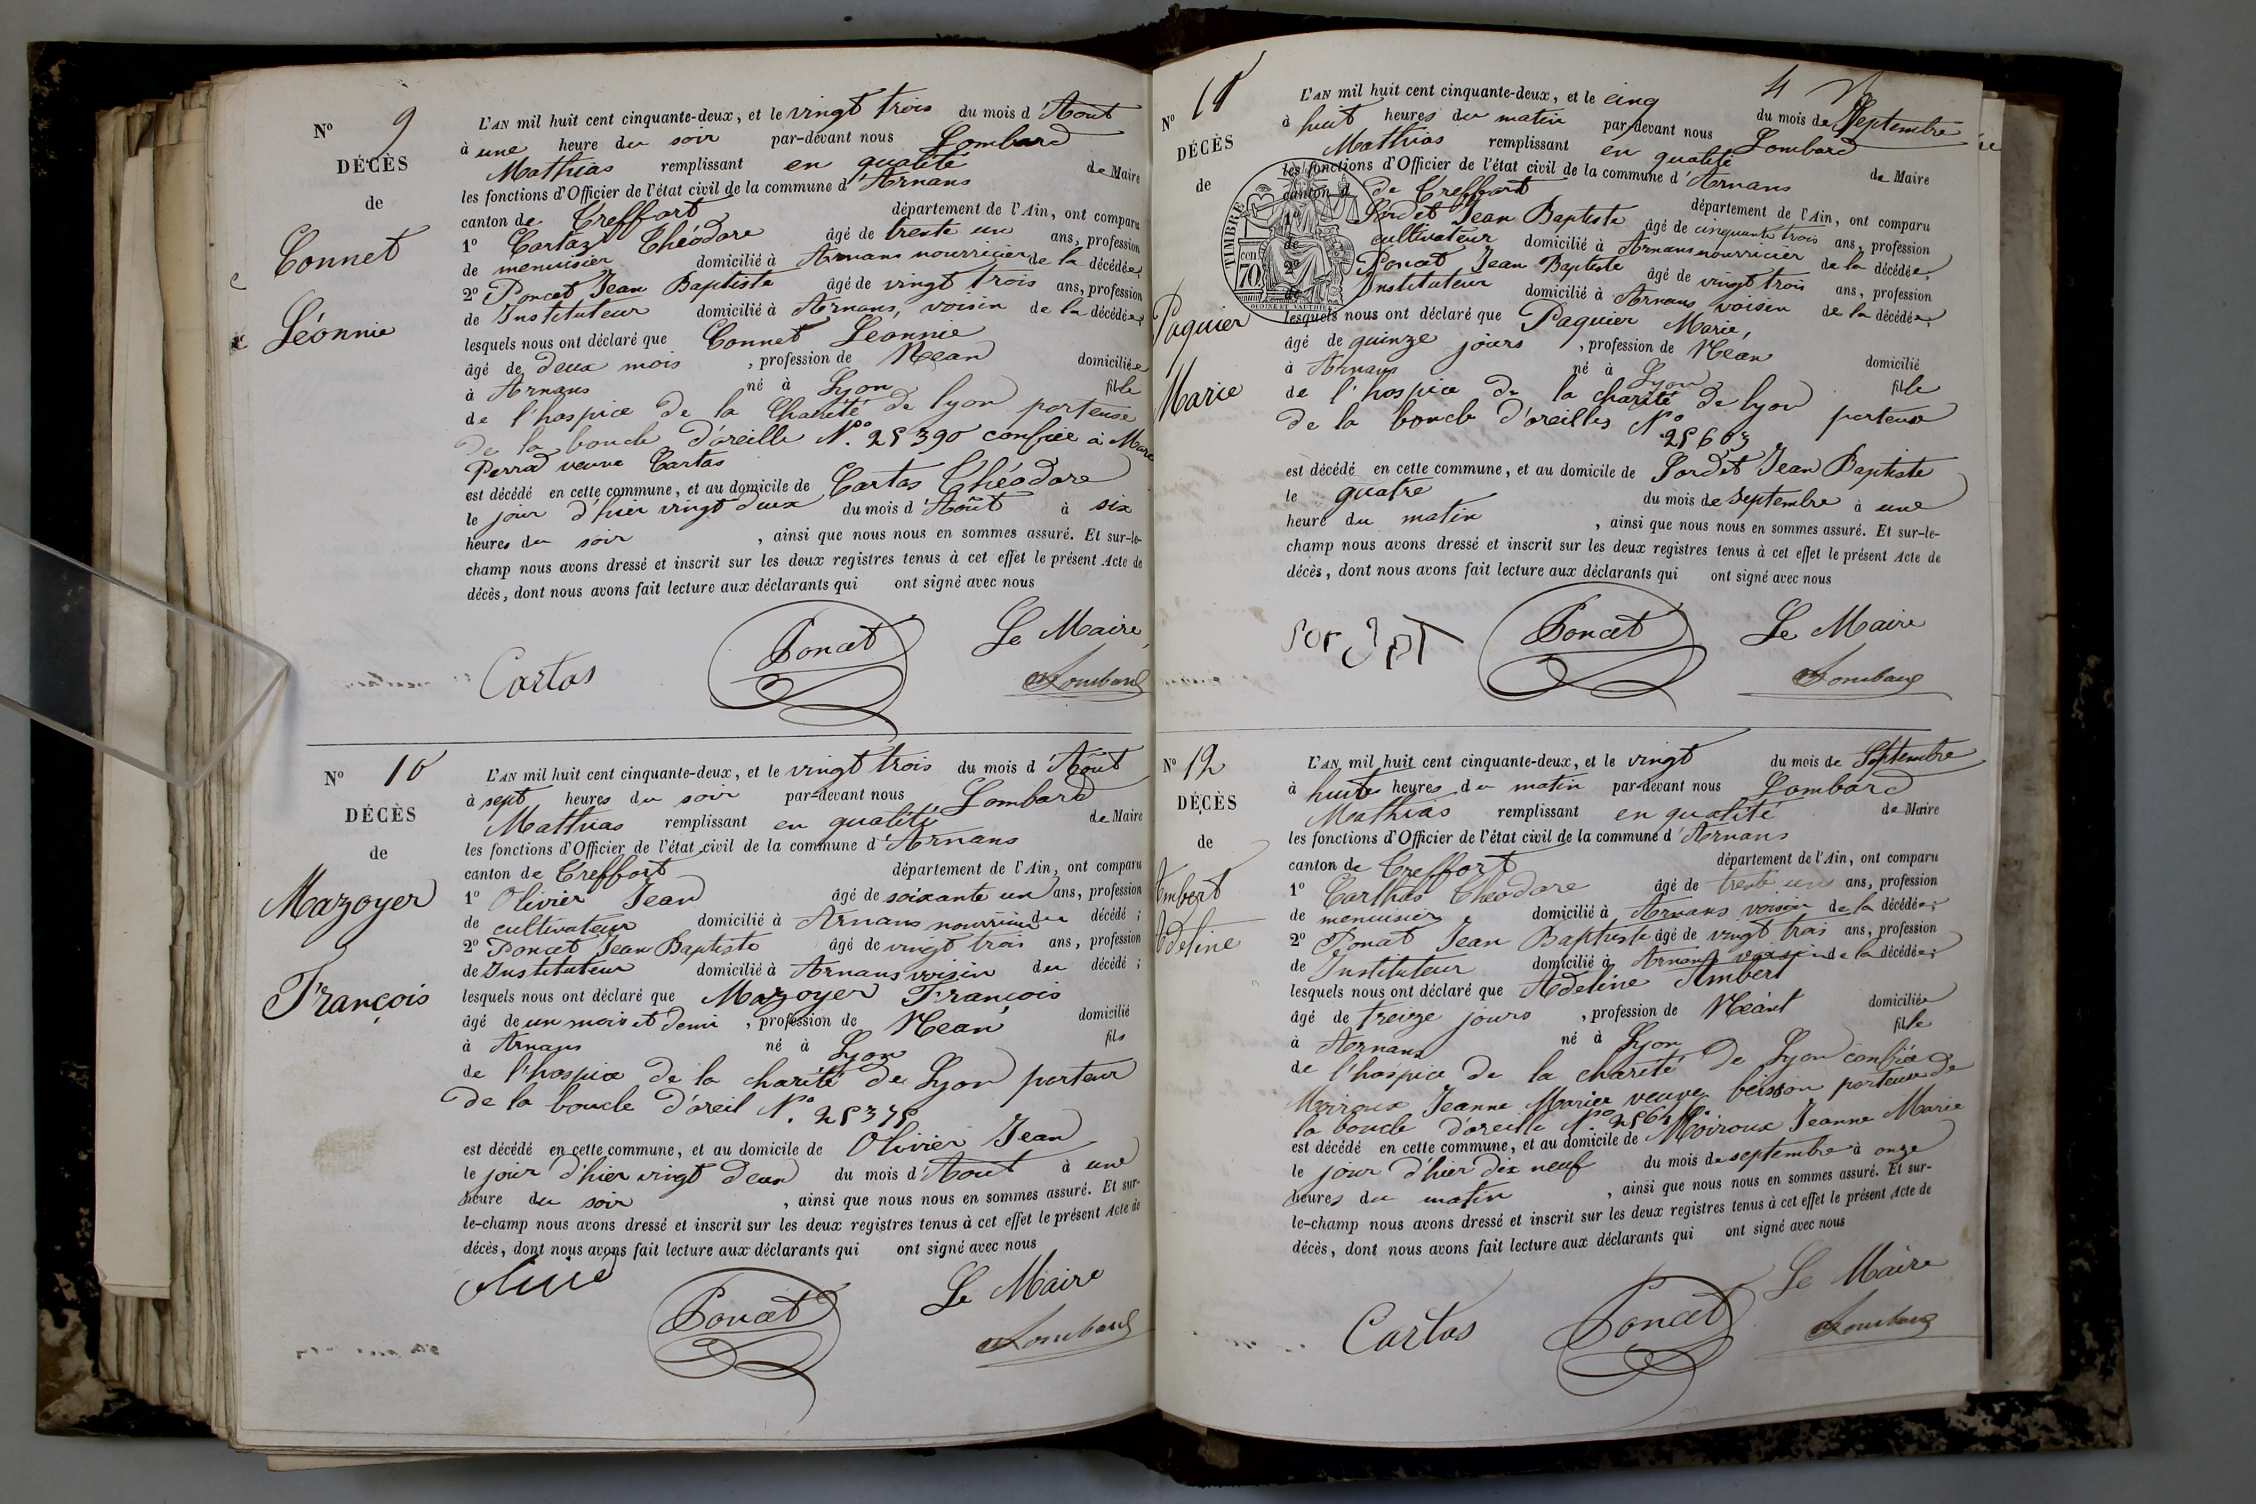 Nº 9
DÉCÈS
de
Connet
Léonnie
L'AN mil huit cent cinquante-deux, et le vingt trois du mois d'Aout
à une heure du soir par-devant nous Lombard
Mathias remplissant en qualité de Maire
les fonctions d'Officier de l'état civil de la commune d'Arnans
canton de Treffort département de l'Ain, ont comparu
1º Cartaz Théodore âgé de trente un ans, profession
de menuisier domicilié à Arnans nourricier de la décédée,
2º Poncet Jean Baptiste âgé de vingt trois ans, profession
de Instituteur domicilié à Arnans, voisin de la décédée,
lesquels nous ont déclaré que Connet Léonnie
âgé de deux mois, profession de Néan domiciliée
à Arnans né à Lyon fille
de l'hospice de la Charité de lyon porteuse
de la boucle d'oreille Nº. 25390 confiée à Marie
Perrad veuve Cartas
est décédé en cette commune, et au domicile de Cartas Théodore
le jour d'hier vingt deux du mois d'Août à six
heures du soir, ainsi que nous nous en sommes assuré. Et sur-le-
champ nous avons dressé et inscrit sur les deux registres tenus à cet effet le présent Acte de
décès, dont nous avons fait lecture aux déclarants qui ont signé avec nous
Cartas Poncet Le Maire
Lombard
Nº 10
DÉCÈS
de
Mazoyer
François
L'AN mil huit cent cinquante-deux, et le vingt trois du mois d'Août
à sept heures du soir par-devant nous Lombard
Matthias remplissant en qualité de Maire
les fonctions d'Officier de l'état civil de la commune d'Arnans
canton de Treffort département de l'Ain, ont comparu
1º Olivier Jean âgé de soixante un ans, profession
de cultivateur domicilié à Arnans nourricier du décédé;
2º Poncet Jean Baptiste âgé de vingt trois ans, profession
de Instituteur domicilié à Arnans voisin du décédé;
lesquels nous ont déclaré que Mazoyer François
âgé de un mois et demi, profession de Néan domicilié
à Arnans né à Lyon fils
de l'hospice de la charité de Lyon porteur
de la boucle d'oreil Nº. 25375
est décédé en cette commune, et au domicile de Olivier Jean
le jour d'hier vingt deux du mois d'Aout à une
heure du soir, ainsi que nous nous en sommes assuré. Et sur-
le-champ nous avons dressé et inscrit sur les deux registres tenus à cet effet le présent Acte de
décès, dont nous avons fait lecture aux déclarants qui ont signé avec nous
Poncet Le Maire
Lombard
Nº 11
DÉCÈS
de
Paquier
Marie
TIMBRE
70
L'AN mil huit cent cinquante-deux, et le cinq du mois de Septembre
à huit heures du matin par-devant nous Lombard
Mathias remplissant en qualité de Maire
les fonctions d'Officier de l'état civil de la commune d'Arnans
canton d de Treffort département de l'Ain, ont comparu
1º Sordet Jean Baptiste âgé de cinquante trois ans, profession
de cultivateur domicilié à Arnans nourricier de la décédée,
2º Poncet Jean Baptiste âgé de vingt trois ans, profession
de Instituteur domicilié à Arnans voisin de la décédée,
lesquels nous ont déclaré que Paquier Marie,
âgé de quinze jours, profession de Néan domicilié
à Arnans né à Lyon fille
de l'hospice de la charité de lyon porteuse
de la boucle d'oreilles Nº 25603
est décédé en cette commune, et au domicile de Sordet Jean Baptiste
le quatre du mois de septembre à une
heure du matin, ainsi que nous nous en sommes assuré. Et sur-le-
champ nous avons dressé et inscrit sur les deux registres tenus à cet effet le présent Acte de
décès, dont nous avons fait lecture aux déclarants qui ont signé avec nous
Poncet Le Maire
Lombard
Nº 12
DÉCÈS
de
Ambert
Adeline
L'AN mil huit cent cinquante-deux, et le vingt du mois de Septembre
à huit heures du matin par-devant nous Lombard
Mathias remplissant en qualité de Maire
les fonctions d'Officier de l'état civil de la commune d'Arnans
canton de Treffort département de l'Ain, ont comparu
1º Carthas Théodore âgé de trente un ans, profession
de menuisier domicilié à Arnans voisin de la décédée;
2º Poncet Jean Baptiste âgé de vingt trois ans, profession
de Instituteur domicilié à Arnans voisin de la décédée;
lesquels nous ont déclaré que Adeline Ambert
âgé de treize jours, profession de Néant domiciliée
à Arnans né à Lyon fille
de l'hospice de la charité de Lyon confiée
Moiroux Jeanne Marie veuve boisson porteuse de
la boucle d'oreille Nº
est décédé en cette commune, et au domicile de Moiroux Jeanne Marie
le jour d'hier dix neuf du mois de septembre à onze
heures du matin, ainsi que nous nous en sommes assuré. Et sur-
le-champ nous avons dressé et inscrit sur les deux registres tenus à cet effet le présent Acte de
décès, dont nous avons fait lecture aux déclarants qui ont signé avec nous
Cartas Poncet Le Maire
Lombard